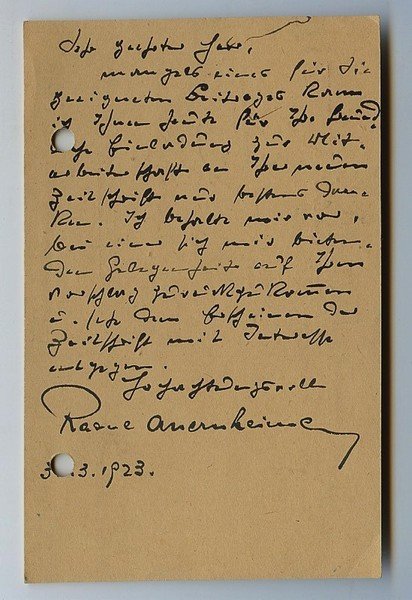 Sehr geehrter Herr,
mangels eines für Sie
geeigneten Beitrages kann
ich Ihnen heute für Ihre freund-
liche Einladung zur Mit-
arbeiterschaft an Ihrer neuen
Zeitschrift nur bestens dan-
ken. Ich behalte mir vor,
bei einer sich mir bieten-
den Gelegenheit auf Ihren
Vorschlag zurückzukommen
u. sehe dem Erscheinen der
Zeitschrift mit Interesse
entgegen.
Hochachtungsvoll
Raoul Auernheimer
.3.1923.